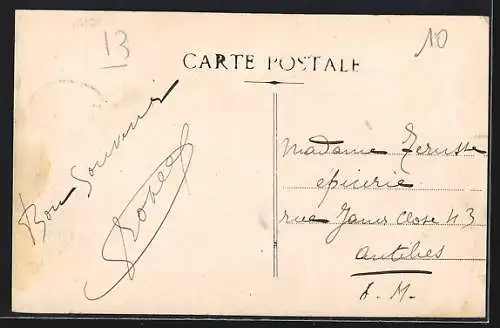 13
10
CARTE POSTALE
Bon Souvenir
Madame
épicerie
rue Close 43
Antibes
A. M.